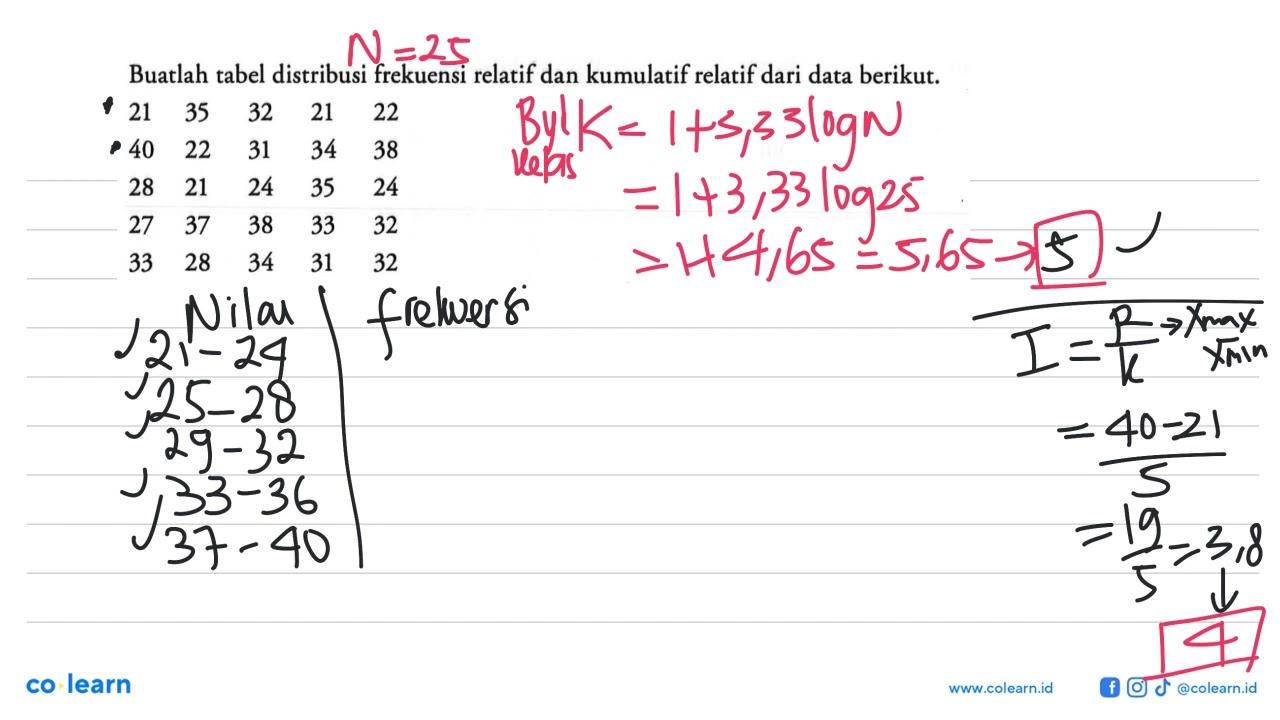 N = 25
Buatlah tabel distribusi frekuensi relatif dan kumulatif relatif dari data berikut.
21 35 32 21 22
40 22 31 34 38
28 21 24 35 24
27 37 38 33 32
33 28 34 31 32
Byk Kelas K = 1+3,33 log N
= 1+3,33 log 25
= 1+4,65 = 5,65 → 5
I = R/k → Xmax Xmin
= 40-21/5
= 19/5 = 3,8
↓
4
Nilai | frekuensi
21-24
25-28
29-32
33-36
37-40
co learn
www.colearn.id
@colearn.id